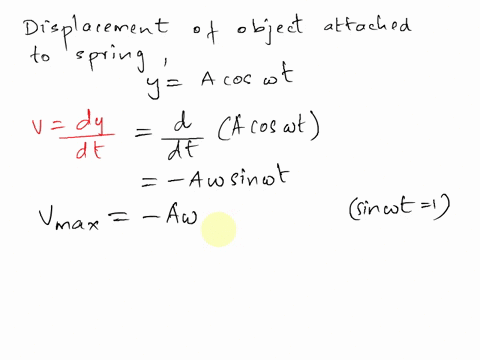 Displacement of object attached
to spring,
y = A cos ωt
v = dy/dt = d/dt (A cos ωt)
= -Aω sin ωt
Vmax = -Aω (sin ωt = 1)